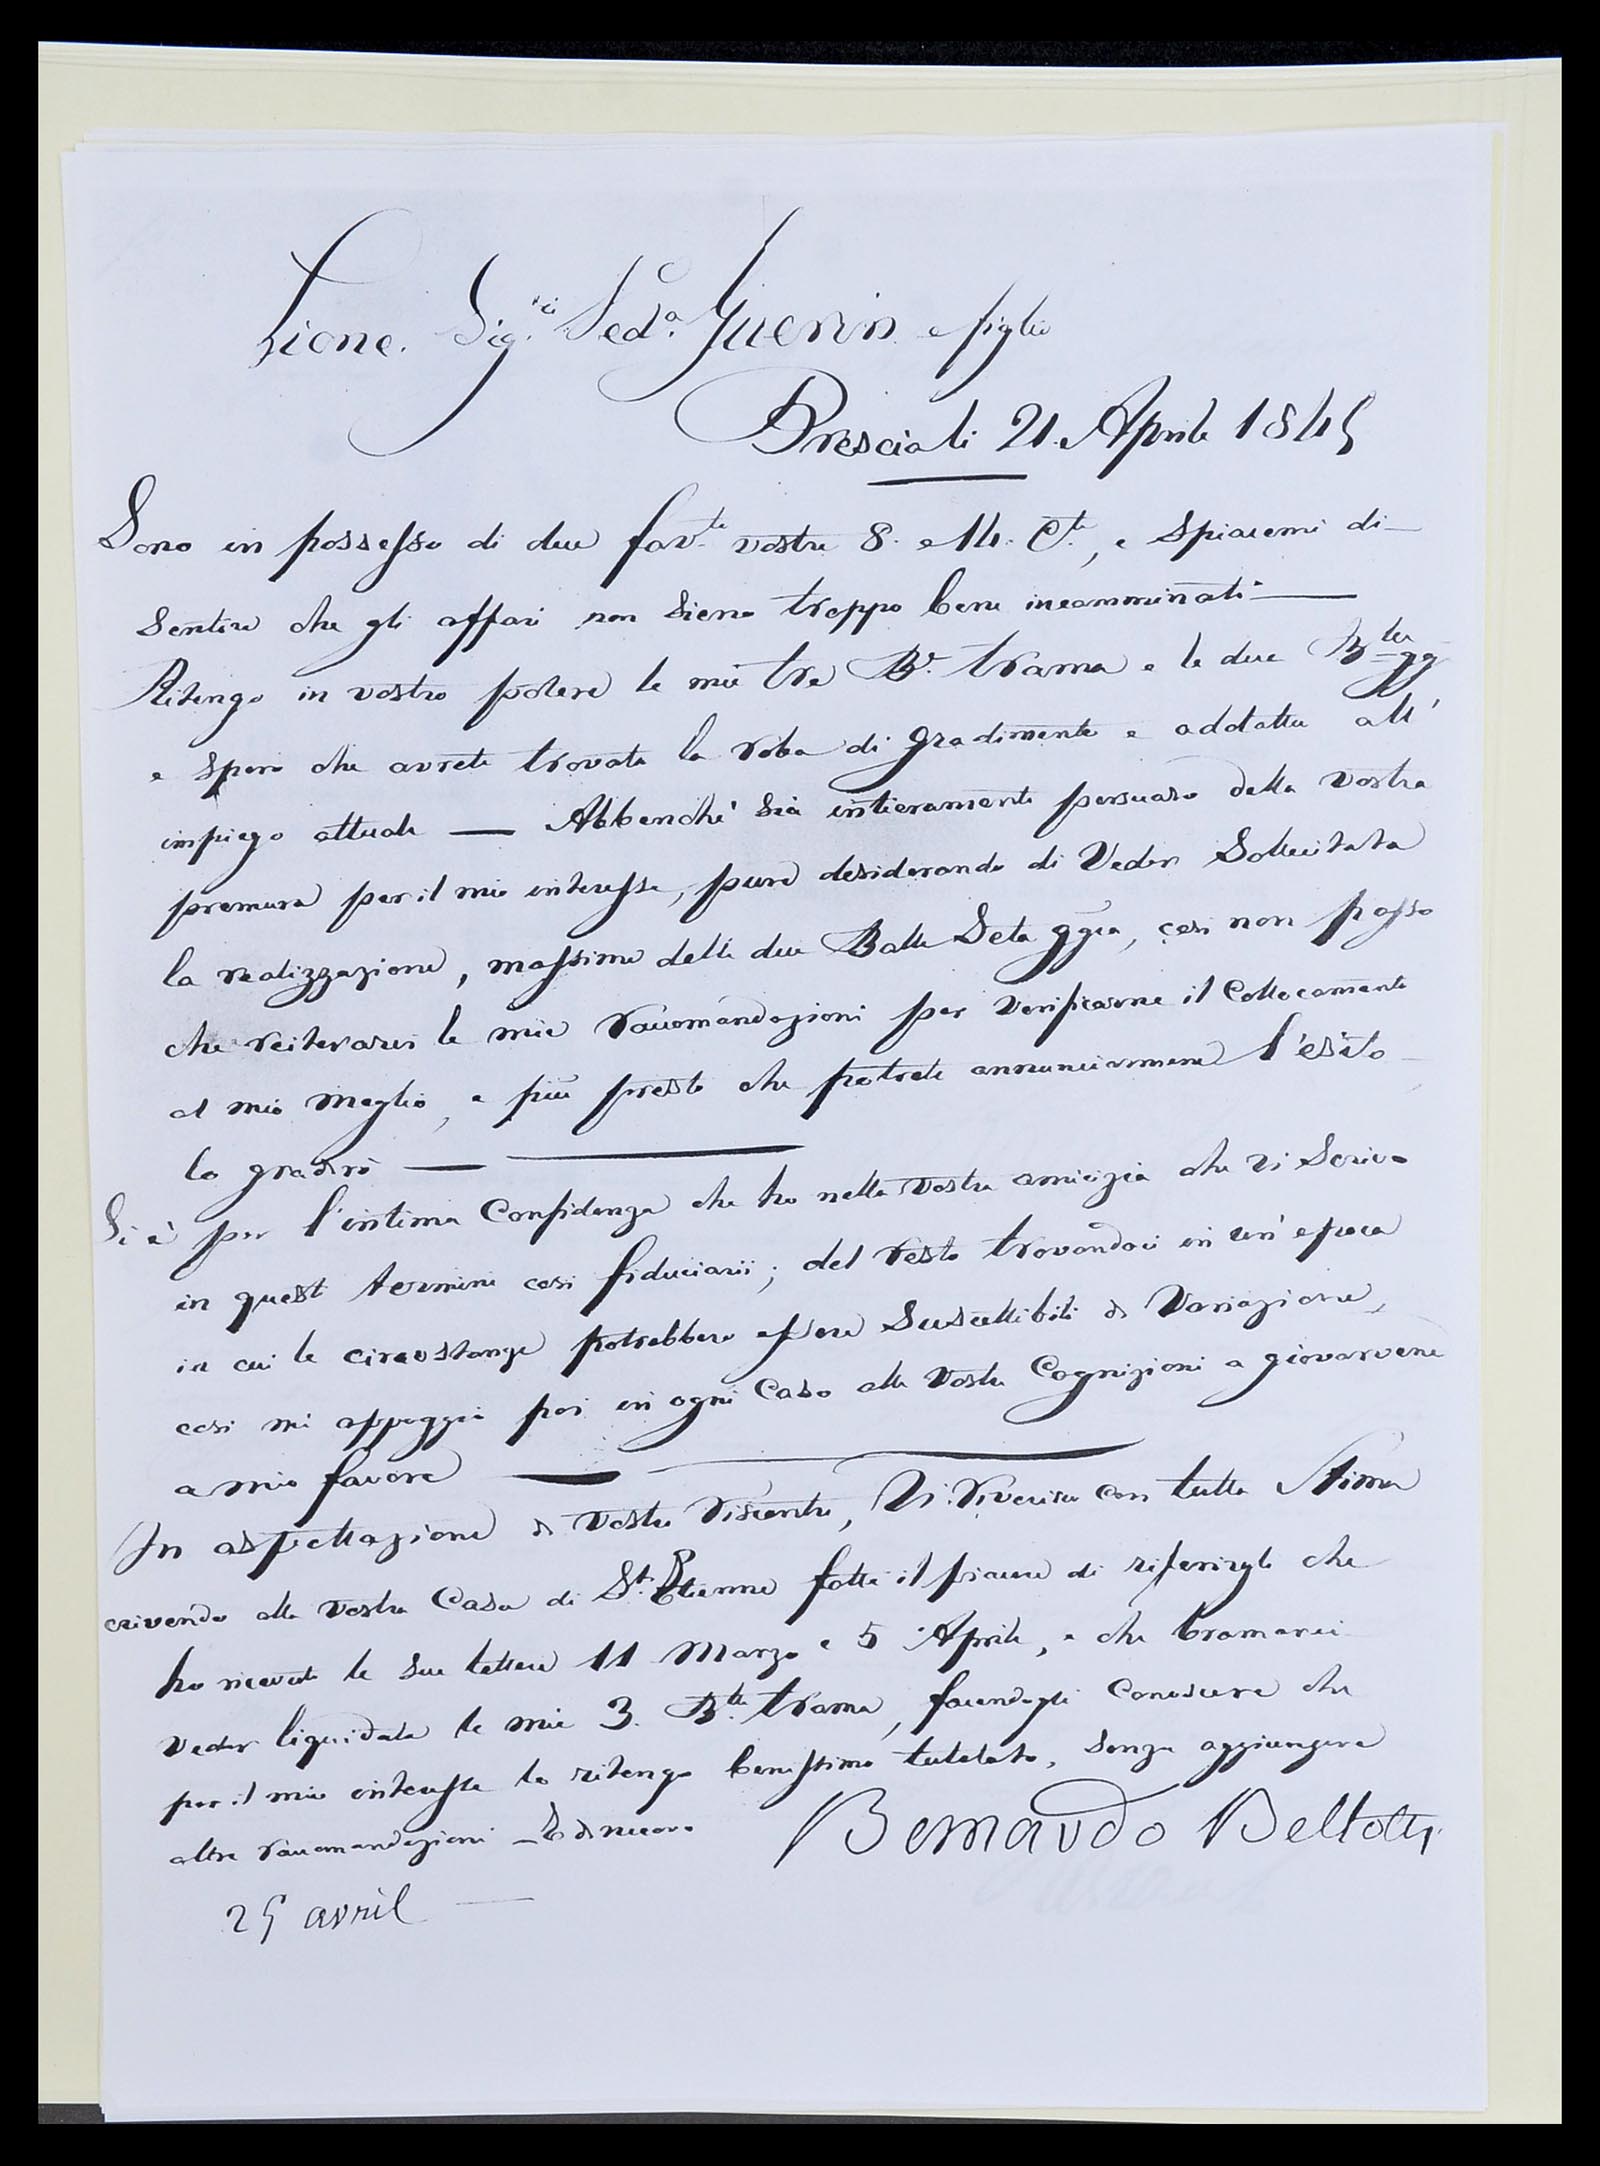 Lione. Sig.ri Ved.a Guerin e figlio
Brescia li 21. Aprile 1845
Sono in possesso di due fav.te vostre 8. e 14. C.te, e spiacemi di
sentire che gli affari non sieno troppo bene incamminati
Ritengo in vostro potere le mie tre B.e trama e le due B.lle gg
e spero che avrete trovata la roba di gradimento e addatta all'
impiego attuale — Abbenchè sia intieramente persuaso della vostra
premura per il mio interesse, pure desiderando di veder sollecitata
la realizzazione, massime delle due Balle Seta ggia, così non posso
che reiterarvi le mie raccomandazioni per verificarne il collocamento
al mio meglio, e più presto che potrete annunciarmene l'esito
lo gradirò —
Si è per l'intima confidenza che ho nella vostra amicizia che vi scrivo
in questi termini così fiduciarii; del resto trovandoci in un'epoca
in cui le circostanze potrebbero essere suscettibili di variazione,
così mi appoggio poi in ogni caso alle vostre cognizioni a giovarvene
a mio favore —
In aspettazione di vostre riscontro, Vi riverisco con tutta stima
crivendo alla vostra Casa di St. Etienne fatte il piacere di riferirgli che
ho ricevute le sue lettere 11 Marzo e 5 Aprile, e che bramerei
veder liquidate le mie 3. B.lle trama, facendogli conoscere che
per il mio interesse lo ritengo benissimo tutelato, senza aggiungere
altre raccomandazioni — E di nuovo
Bernardo Bellotti
25 avril —